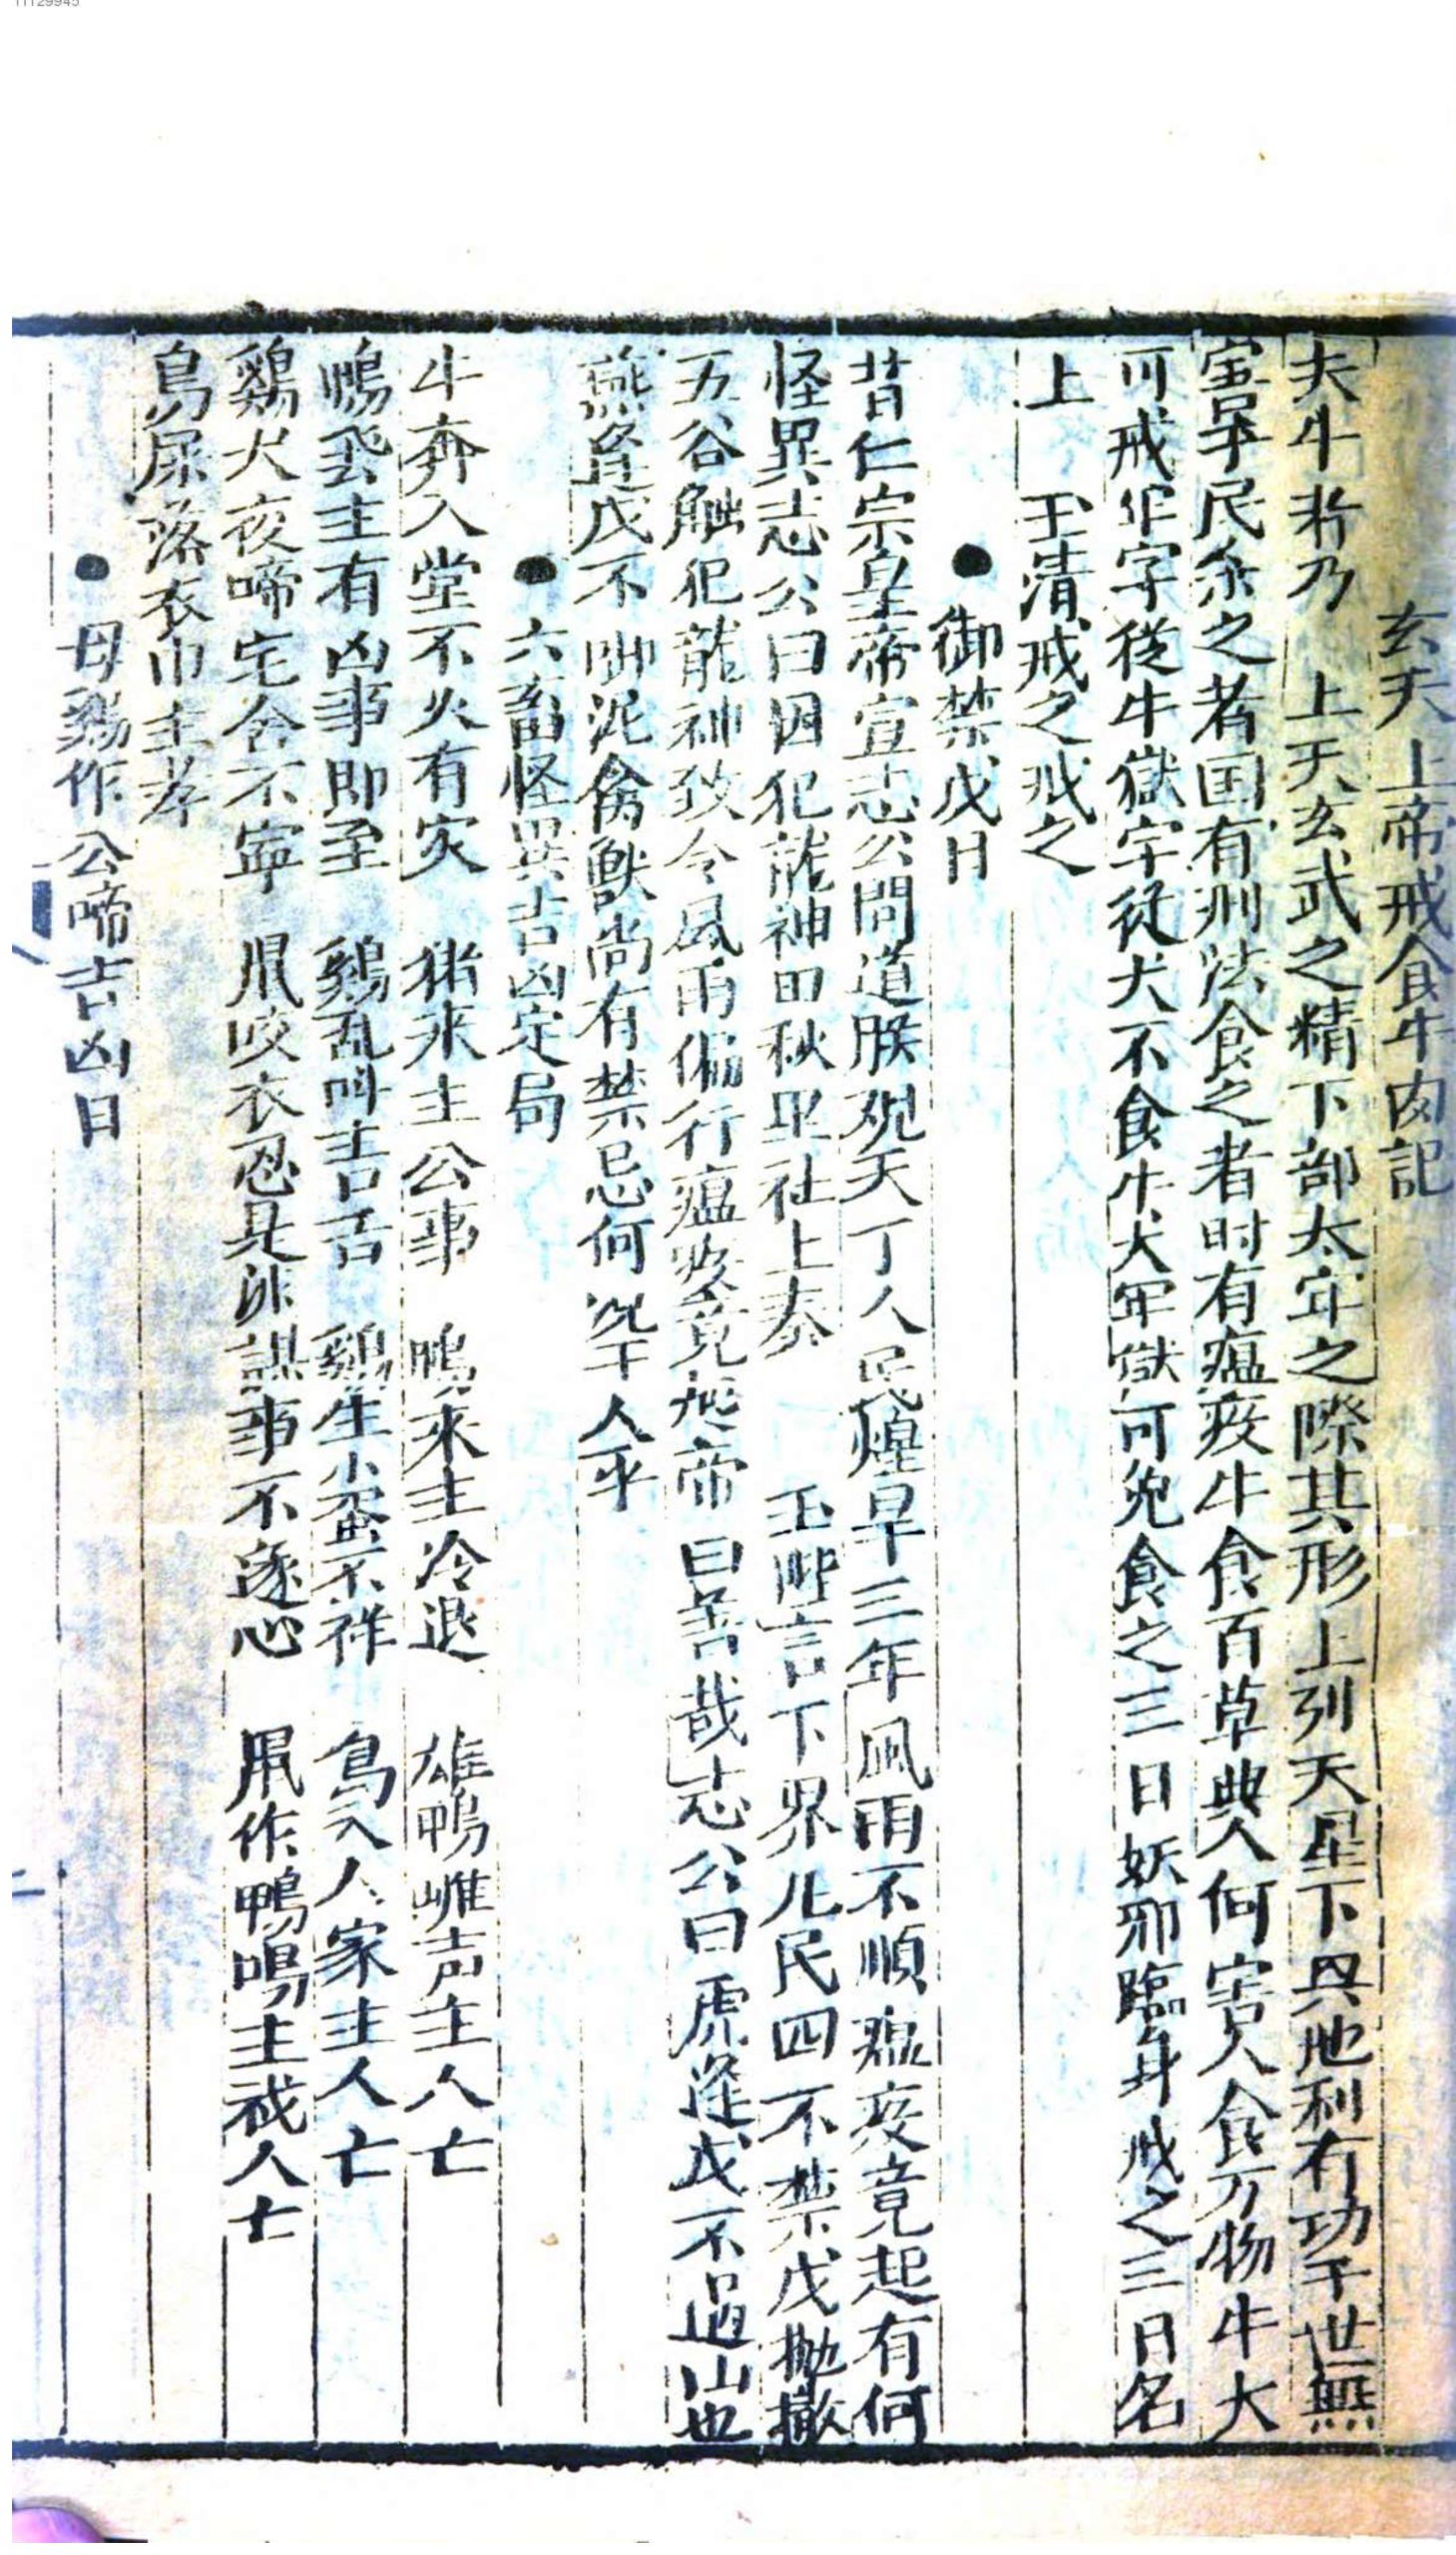 玄天上帝戒食牛肉記
夫牛者乃 上天玄武之精下部太牢之際其形上列天星下具地利有功于世無
宝罕民杀之者国有刑法食之者时有瘟疫牛食百草與人何害人食万物牛大
可戒牢字従牛獄字従犬不食牛犬牢獄可免食之三日妖邪臨身戒之三日名
上 玉清戒之戒之
●御禁戊日
昔仁宗皇帝宣志公問道朕观天下人民煌旱三年風雨不順瘟疫竟起有何
怪異志公曰因犯龍神田秋里社上奏 玉陛言下界凢民四不禁戊抛撒
五谷触犯龍神致令風雨偏行瘟疫竟起帝曰善哉志公曰虎逢戊不過山也
燕逢戊不啣泥禽獸尚有禁忌何况于人乎
●六畜怪異吉凶定局
牛奔入堂不火有灾 猪来主公事 鴨来主冷退 雄鴨雌声主人亡
鴨飛主有凶事即至 鷄乱呌吉吉 鷄生小蛋不祥 鳥入人家主人亡
鷄犬夜啼宅舍不寧 鼠咬衣忍是非謀事不遂心 鼠作鴨鳴主戒人亡
鳥屎落衣巾主孝
●母鷄作公啼吉凶日